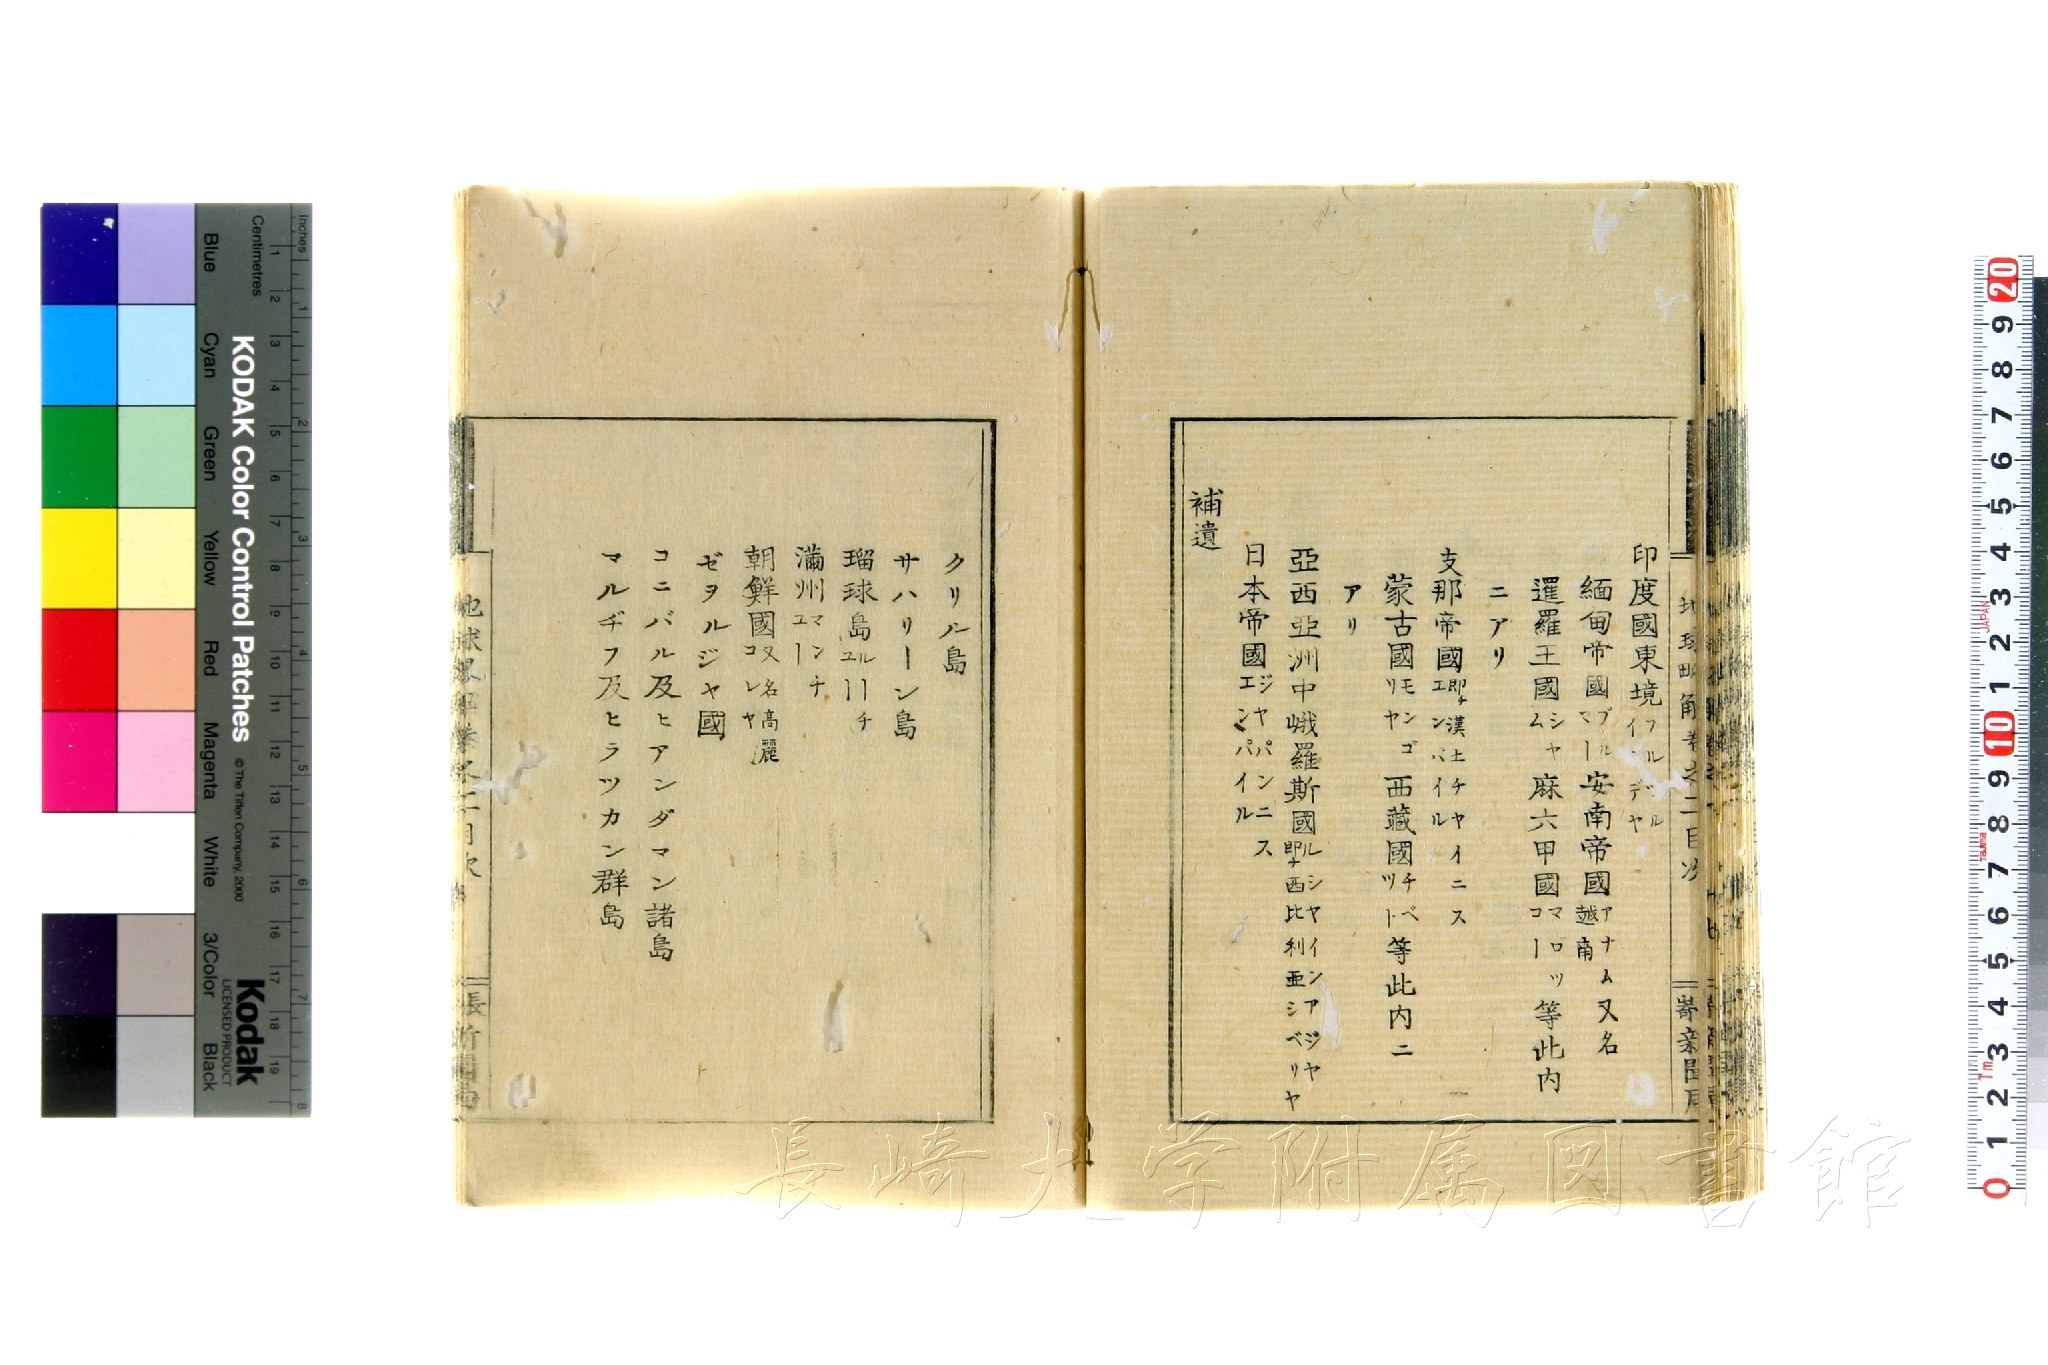 印度國東境フルデルインデヤ
緬甸帝國ブルマー安南帝國アナム又名越南
暹羅王國シャム麻六甲國マロッコー等此内
ニアリ
支那帝國即チ漢土チヤイニスエンパイル
蒙古國モンゴリヤ西藏國チベット等此内ニ
アリ
亞西亞洲中峨羅斯國ルシヤインアジヤ即チ西比利亜シベリヤ
日本帝國ジヤパンニスエンパイル
補遺
クリル島
サハリーン島
瑠球島ルーチユー
滿州マンチユー
朝鮮國又名高麗コレヤ
ゼヲルジヤ國
コニバル及ヒアンダマン諸島
マルヂフ及ヒラツカン群島
長崎大学附属図書館
KODAK Color Control Patches
© The Tiffen Company, 2000
Kodak
LICENSED PRODUCT
Blue
Cyan
Green
Yellow
Red
Magenta
White
3/Color
Black
Inches
Centimetres
1 2 3 4 5 6 7 8 9 10 11 12 13 14 15 16 17 18 19
1 2 3 4 5 6 7 8
20 9 8 7 6 5 4 3 2 1 10 9 8 7 6 5 4 3 2 1 0
JAPAN